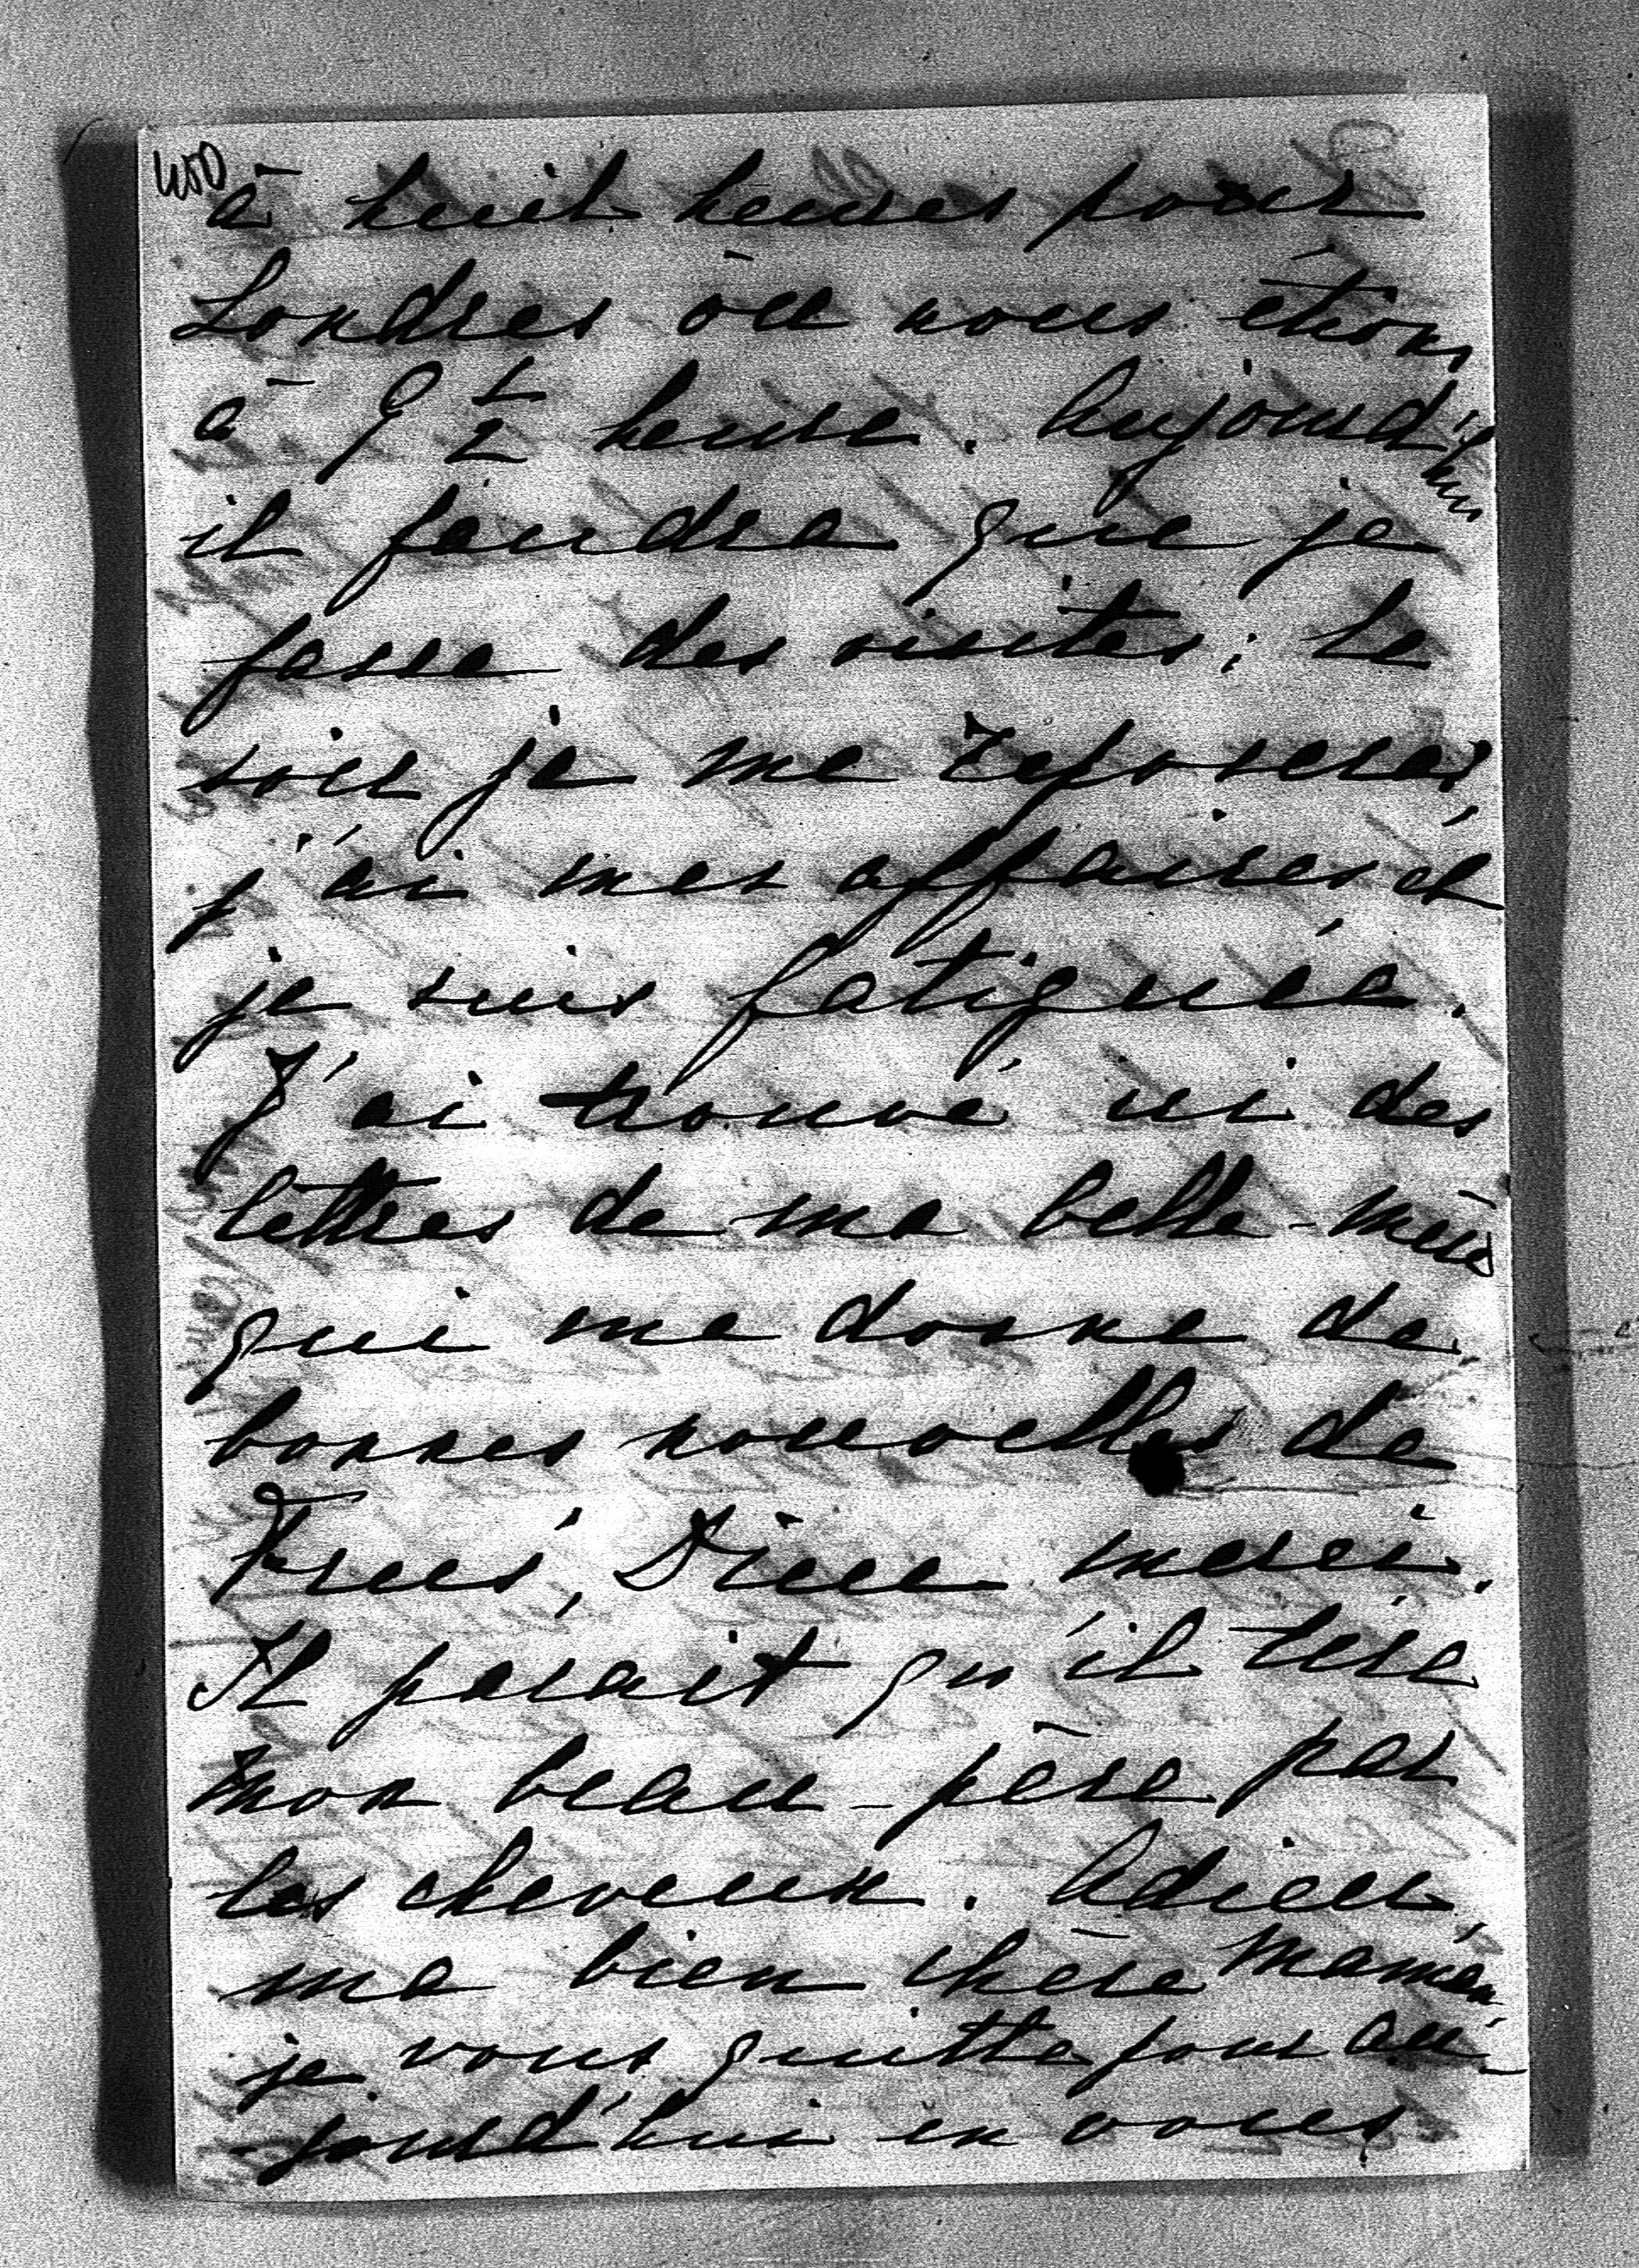 400
à huit heures pour
Londres où nous étions
à 9 1/2 heure. Aujourd'hui
il faudra que je
fasse des visites; le
soir je me reposerai
j'ai mes affaires et
je suis fatiguée.
J'ai trouvé ici des
lettres de ma belle-mère
qui me donne de
bonnes nouvelles de
Dieu merci.
Il parait qu'il tire
mon beau-père par
les cheveux. Adieu,
ma bien chère Maman,
je vous quitte pour au-
-jourd'hui en vous